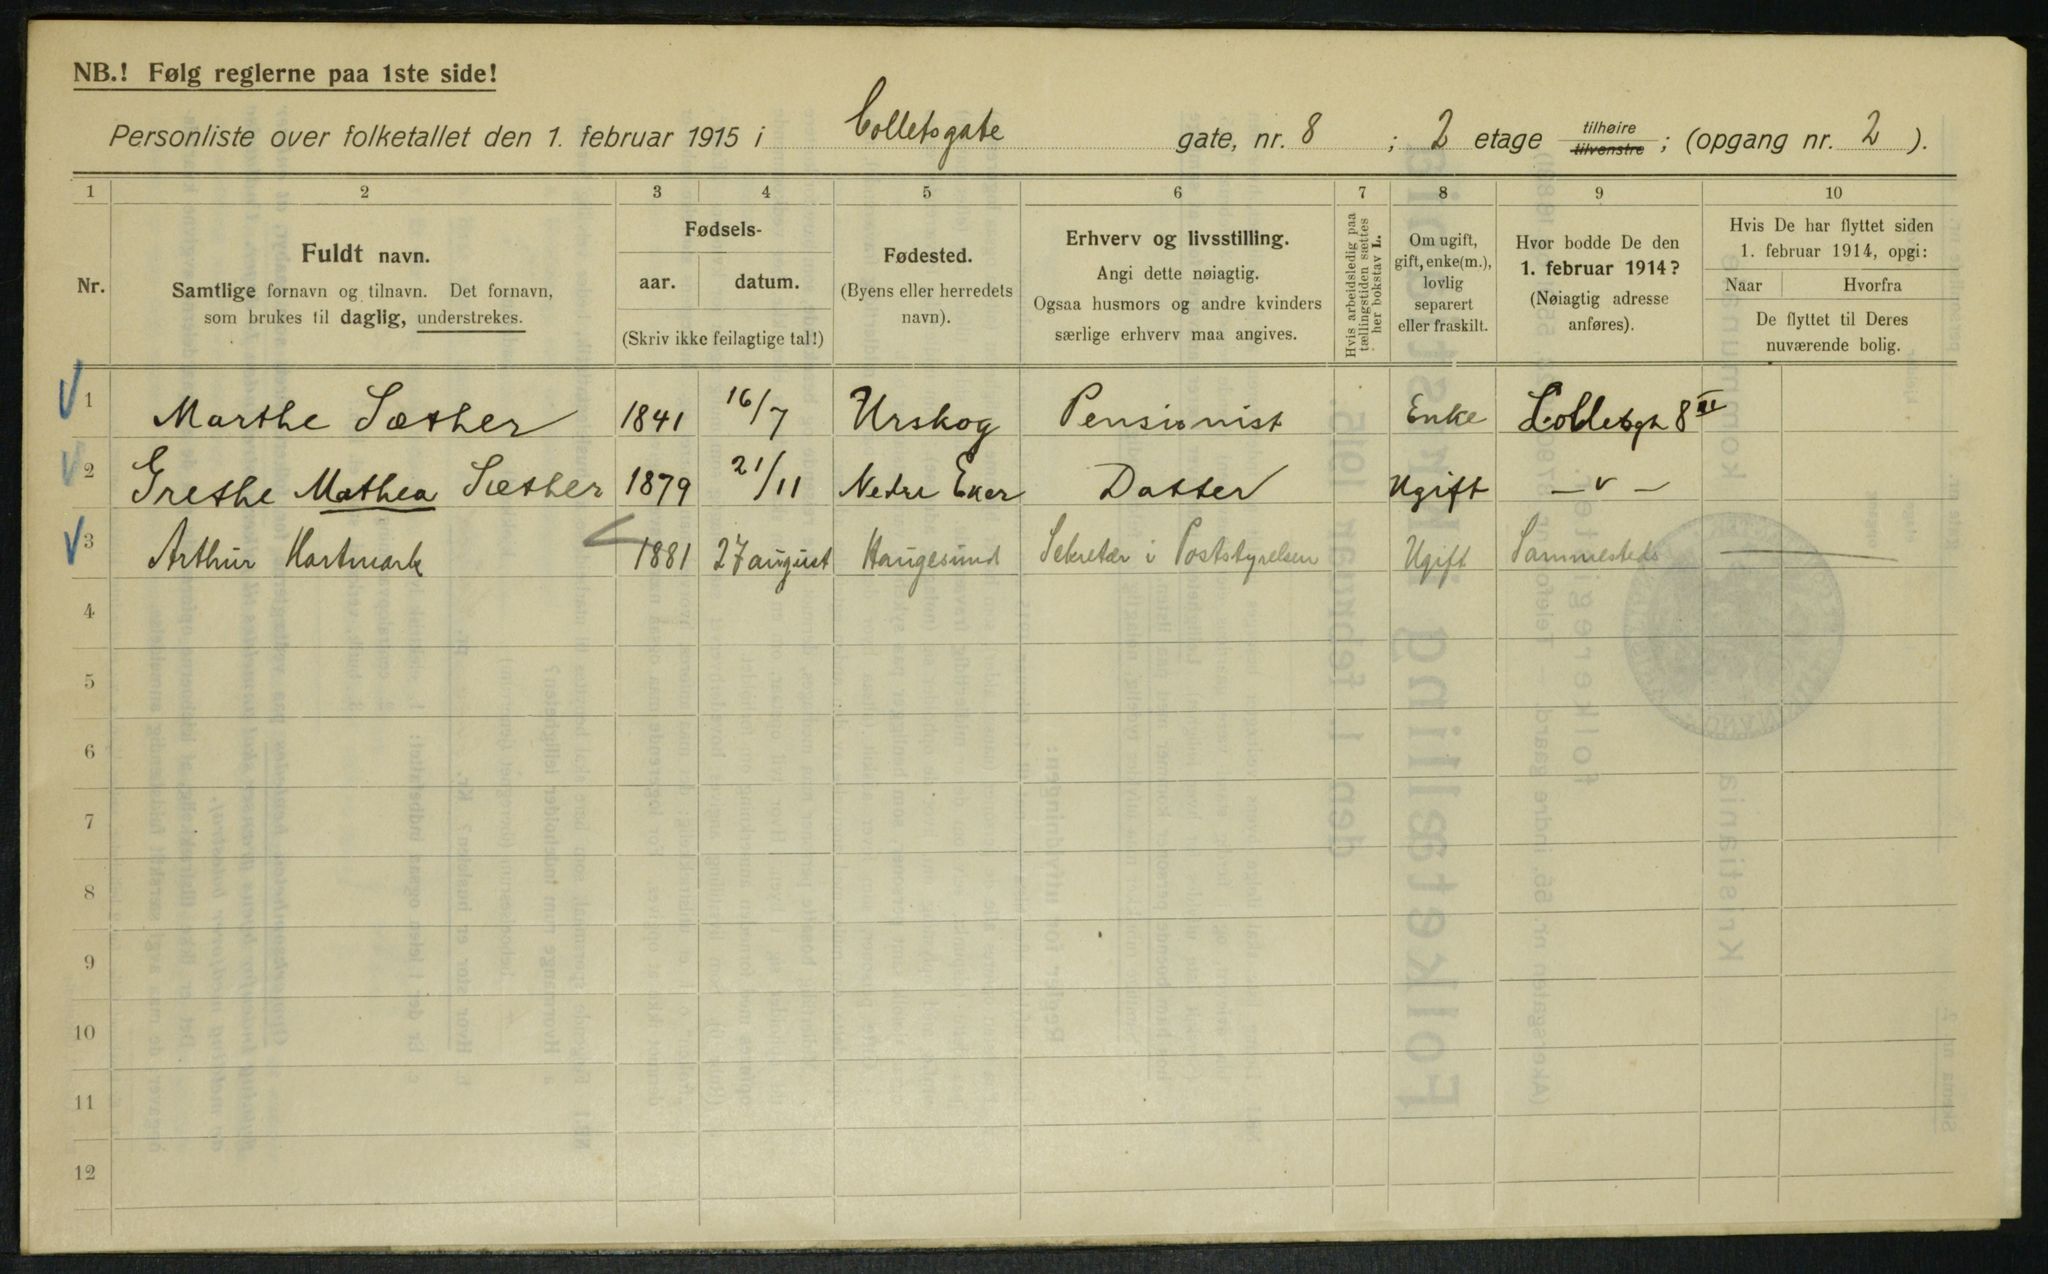 NB.! Følg reglerne paa 1ste side!
Personliste over folketallet den 1. februar 1915 i Colletsgate gate, nr. 8 ; 2 etage tilhøire tilvenstre ; (opgang nr. 2 ).
1 2 3 4 5 6 7 8 9 10
Nr.
Fuldt navn.
Samtlige fornavn og tilnavn. Det fornavn,
som brukes til daglig, understrekes.
Fødsels-
aar. datum.
(Skriv ikke feilagtige tal!)
Fødested.
(Byens eller herredets
navn).
Erhverv og livsstilling.
Angi dette nøiagtig.
Ogsaa husmors og andre kvinders
særlige erhverv maa angives.
Hvis arbeidsledig paa
tællingstiden sættes
her bokstav L.
Om ugift,
gift, enke(m.),
lovlig
separert
eller fraskilt.
Hvor bodde De den
1. februar 1914?
(Nøiagtig adresse
anføres).
Hvis De har flyttet siden
1. februar 1914, opgi:
Naar Hvorfra
De flyttet til Deres
nuværende bolig.
1 Marthe Sæther 1841 16/7 Urskog Pensionist Enke Colletsgt 8 III
2 Grethe Mathea Sæther 1879 21/11 Nedre Eker Datter Ugift — v —
3 Arthur Hartmark 1881 27 august Haugesund Sekretær i Poststyrelsen Ugift Sammesteds
4
5
6
7
8
9
10
11
12